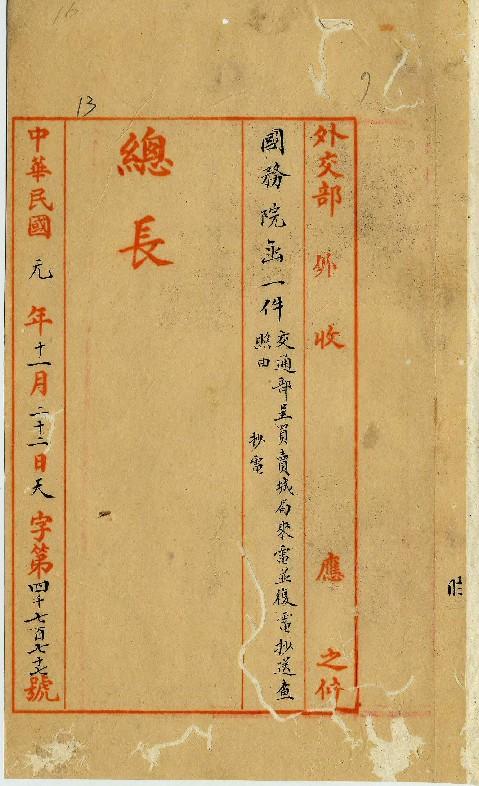 16
13
外交部 外 收 應 之件
國務院函一件 交通部呈買賣城局來電並復電抄送查
照由
抄電
總長
中華民國元年十一月二十二日天字第四千七百七十七號